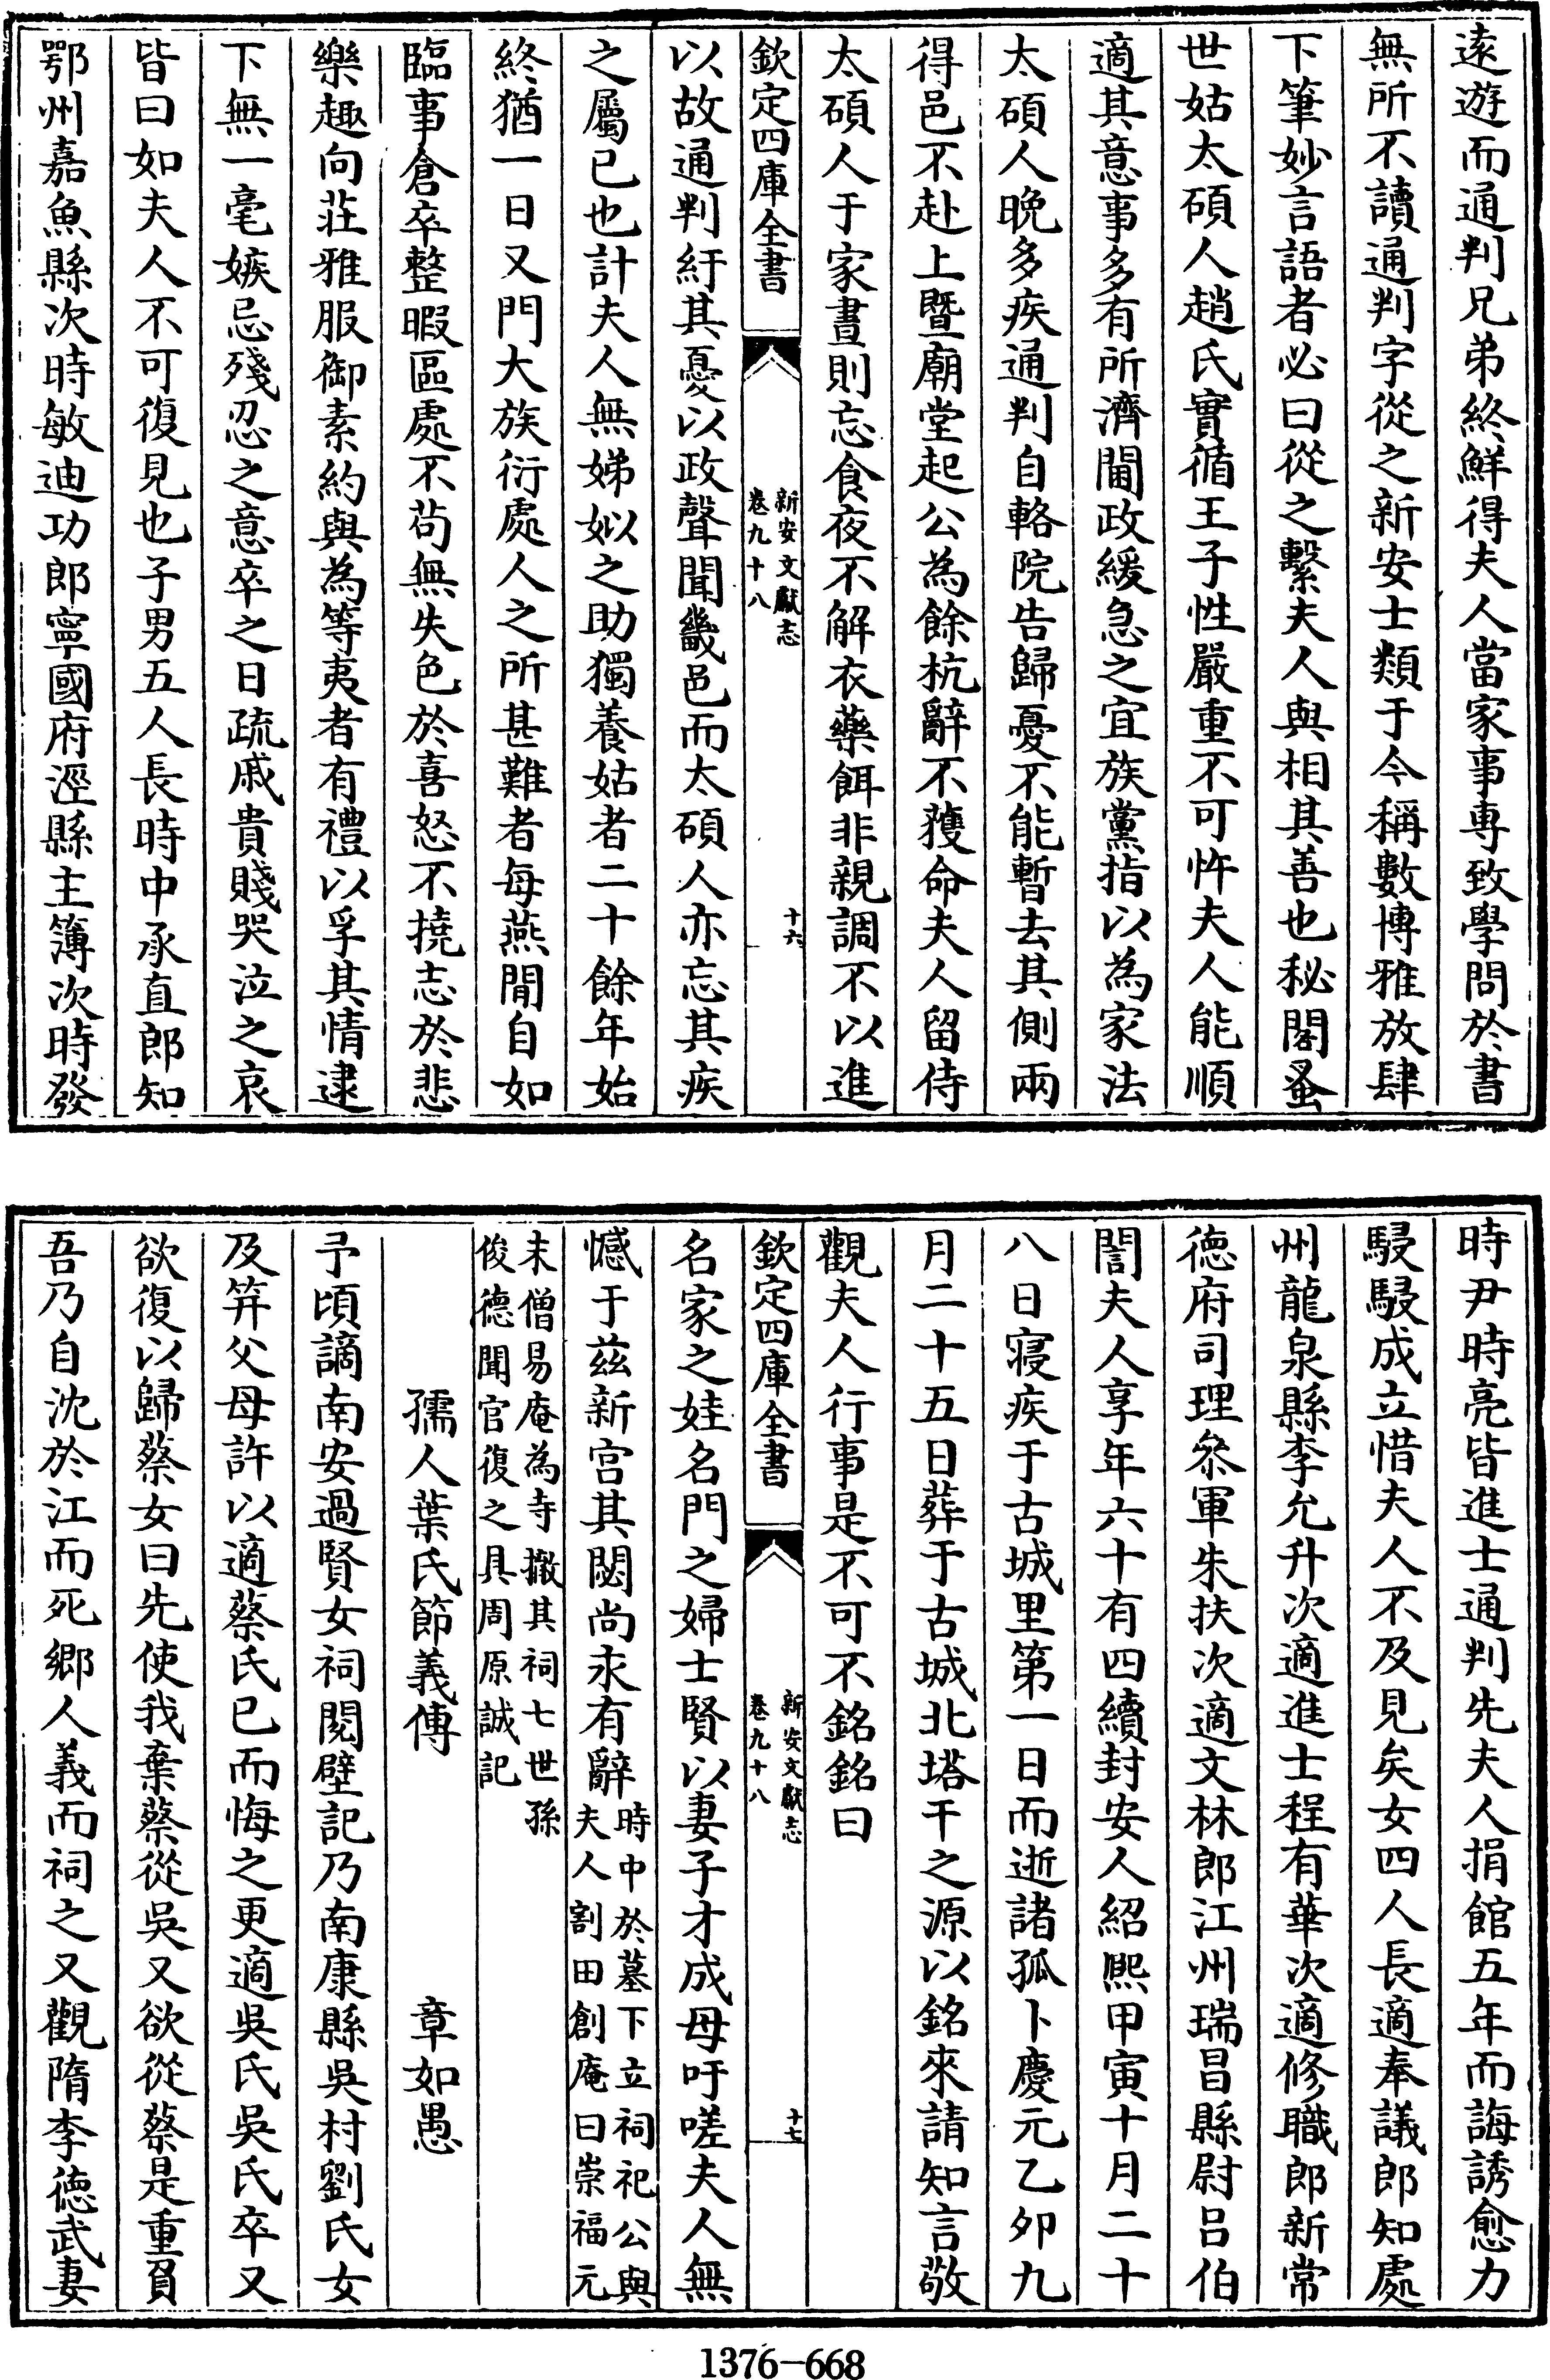 逺遊而通判兄弟終鮮得夫人當家事專致學問於書
無所不讀通判字從之新安士類于今稱數博雅放肆
下筆妙言語者必曰從之繫夫人與相其善也秘閣蚤
世姑太碩人趙氏實循王子性嚴重不可忤夫人能順
適其意事多有所濟閫政緩急之宜族黨指以為家法
太碩人晚多疾通判自輅院告歸憂不能暫去其側兩
得邑不赴上暨廟堂起公為餘杭辭不獲命夫人留侍
太碩人于家晝則忘食夜不解衣藥餌非親調不以進
欽定四庫全書
新安文獻志
卷九十八
十六
以故通判紆其憂以政聲聞畿邑而太碩人亦忘其疾
之屬已也計夫人無娣姒之助獨養姑者二十餘年始
終猶一日又門大族衍處人之所甚難者每燕閒自如
臨事倉卒整暇區處不茍無失色於喜怒不撓志於悲
樂趣向莊雅服御素約與為等夷者有禮以孚其情逮
下無一毫嫉忌殘忍之意卒之日疏戚貴賤哭泣之哀
皆曰如夫人不可復見也子男五人長時中承直郎知
鄂州嘉魚縣次時敏迪功郎寧國府涇縣主簿次時發
時尹時亮皆進士通判先夫人捐館五年而誨誘愈力
駸駸成立惜夫人不及見矣女四人長適奉議郎知處
州龍泉縣李允升次適進士程有華次適修職郎新常
徳府司理叅軍朱扶次適文林郎江州瑞昌縣尉吕伯
誾夫人享年六十有四續封安人紹熙甲寅十月二十
八日寢疾于古城里第一日而逝諸孤卜慶元乙夘九
月二十五日葬于古城北塔干之源以銘來請知言敬
觀夫人行事是不可不銘銘曰
欽定四庫全書
新安文獻志
卷九十八
十七
名家之娃名門之婦士賢以妻子才成母吁嗟夫人無
憾于兹新宫其閟尚求有辭時中於墓下立祠祀公與
夫人割田創庵曰崇福元
末僧易庵為寺撤其祠七世孫
俊德聞官復之具周原誠記
孺人葉氏節義傳　章如愚
予頃謫南安過賢女祠閱壁記乃南康縣吳村劉氏女
及笄父母許以適蔡氏已而悔之更適吳氏吳氏卒又
欲復以歸蔡女曰先使我棄蔡從吳又欲從蔡是重負
吾乃自沈於江而死鄉人義而祠之又觀隋李徳武妻
1376-668